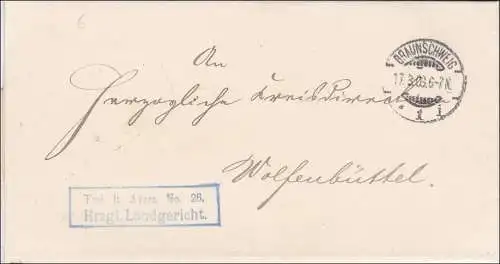 6
BRAUNSCHWEIG
17.3.03.6-7N.
* 1 i
An
Herzogliche Kreisdirection
Wolfenbüttel.
Frei lt. Avers. No. 26.
Hrzgl. Landgericht.